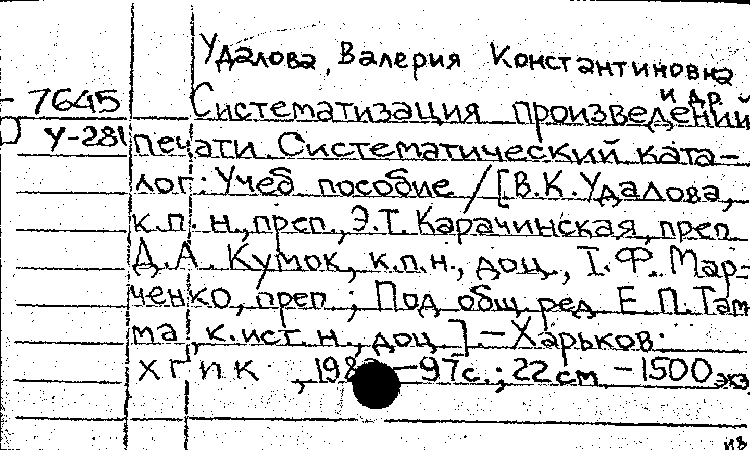 Удалова, Валерия Константиновна
и др.
7645 Систематизация произведений
У-281 печати. Систематический ката-
лог: Учеб пособие / [В.К. Удалова,
к.п.н., преп., Э.Т. Карачинская, преп
Д.А. Кумок, к.п.н., доц., І.Ф. Мар-
ченко, преп.; Под общ. ред Е.П. Там
ма, к.ист.н., доц.] — Харьков:
ХГИК, — 97с.; 22 см. — 1500 экз
из